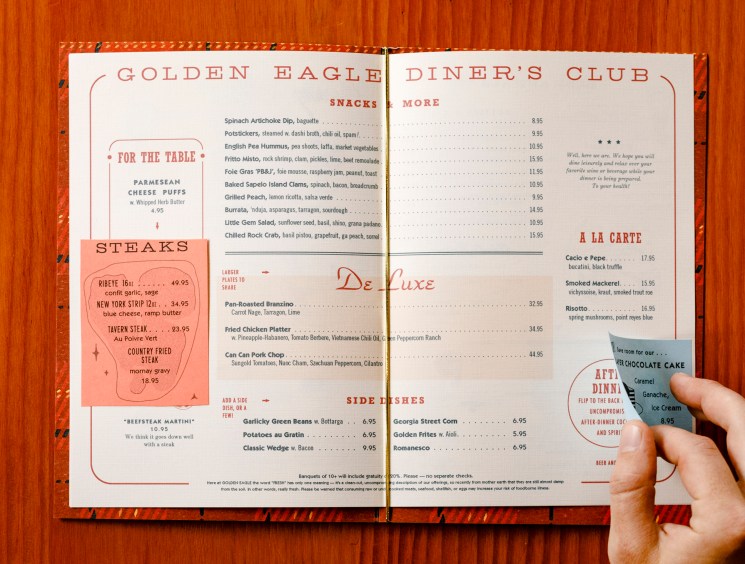 GOLDEN EAGLE DINER'S CLUB
SNACKS & MORE
Spinach Artichoke Dip, baguette 8.95
Potstickers, steamed w. dashi broth, chili oil, spam! 9.95
English Pea Hummus, pea shoots, laffa, market vegetables 10.95
Fritto Misto, rock shrimp, clam, pickles, lime, beet remoulade 15.95
Foie Gras 'PB&J', foie mousse, raspberry jam, peanut, toast 11.95
Baked Sapelo Island Clams, spinach, bacon, breadcrumb 10.95
Grilled Peach, lemon ricotta, salsa verde 9.95
Burrata, 'nduja, asparagus, tarragon, sourdough 14.95
Little Gem Salad, sunflower seed, basil, shiro, grana padano 10.95
Chilled Rock Crab, basil pistou, grapefruit, ga peach, sumac 15.95
FOR THE TABLE
PARMESEAN
CHEESE PUFFS
w. Whipped Herb Butter
4.95
STEAKS
RIBEYE 16oz 49.95
confit garlic, sage
NEW YORK STRIP 12oz 34.95
blue cheese, ramp butter
TAVERN STEAK 23.95
Au Poivre Vert
COUNTRY FRIED
STEAK
mornay gravy
18.95
"BEEFSTEAK MARTINI"
10.95
We think it goes down well
with a steak
LARGER
PLATES TO
SHARE
De Luxe
Pan-Roasted Branzino 32.95
Carrot Nage, Tarragon, Lime
Fried Chicken Platter 34.95
w. Pineapple-Habanero, Tomato Bettern, Vietnamese Chili Oil, Green Peppercorn Ranch
Can Can Pork Chop 44.95
Sungold Tomatoes, Nuoc Cham, Szechuan Peppercorn, Cilantro
ADD A SIDE
DISH, OR A
FEW!
SIDE DISHES
Garlicky Green Beans w. Bottarga 6.95
Potatoes au Gratin 6.95
Classic Wedge w. Bacon 9.95
Georgia Street Corn 6.95
Golden Frites w. Aioli 5.95
Romanesco 6.95
Banquets of 10+ will include gratuity of 20%. Please — no separate checks.
Here at GOLDEN EAGLE the word "FRESH" has only one meaning — it's a clean-cut, uncompromising description of our offerings, so recently from mother earth that they are still damp
from the soil. In other words, really fresh. Please be warned that consuming raw or undercooked meats, seafood, shellfish, or eggs may increase your risk of foodborne illness.
Well, here we are. We hope you will
dine leisurely and relax over your
favorite wine or beverage while your
dinner is being prepared.
To your health!
A LA CARTE
Cacio e Pepe 17.95
bucatini, black truffle
Smoked Mackerel 15.95
vichyssoise, knot, smoked trout roe
Risotto 16.95
spring mushrooms, point reyes blue
AFTER
DINN
FLIP TO THE BACK
UNCOMPROMIS
AFTER-DINNER COC
AND SPIRI
BEER AN
Save room for our . . .
CHOCOLATE CAKE
Caramel
Ganache,
Ice Cream
8.95